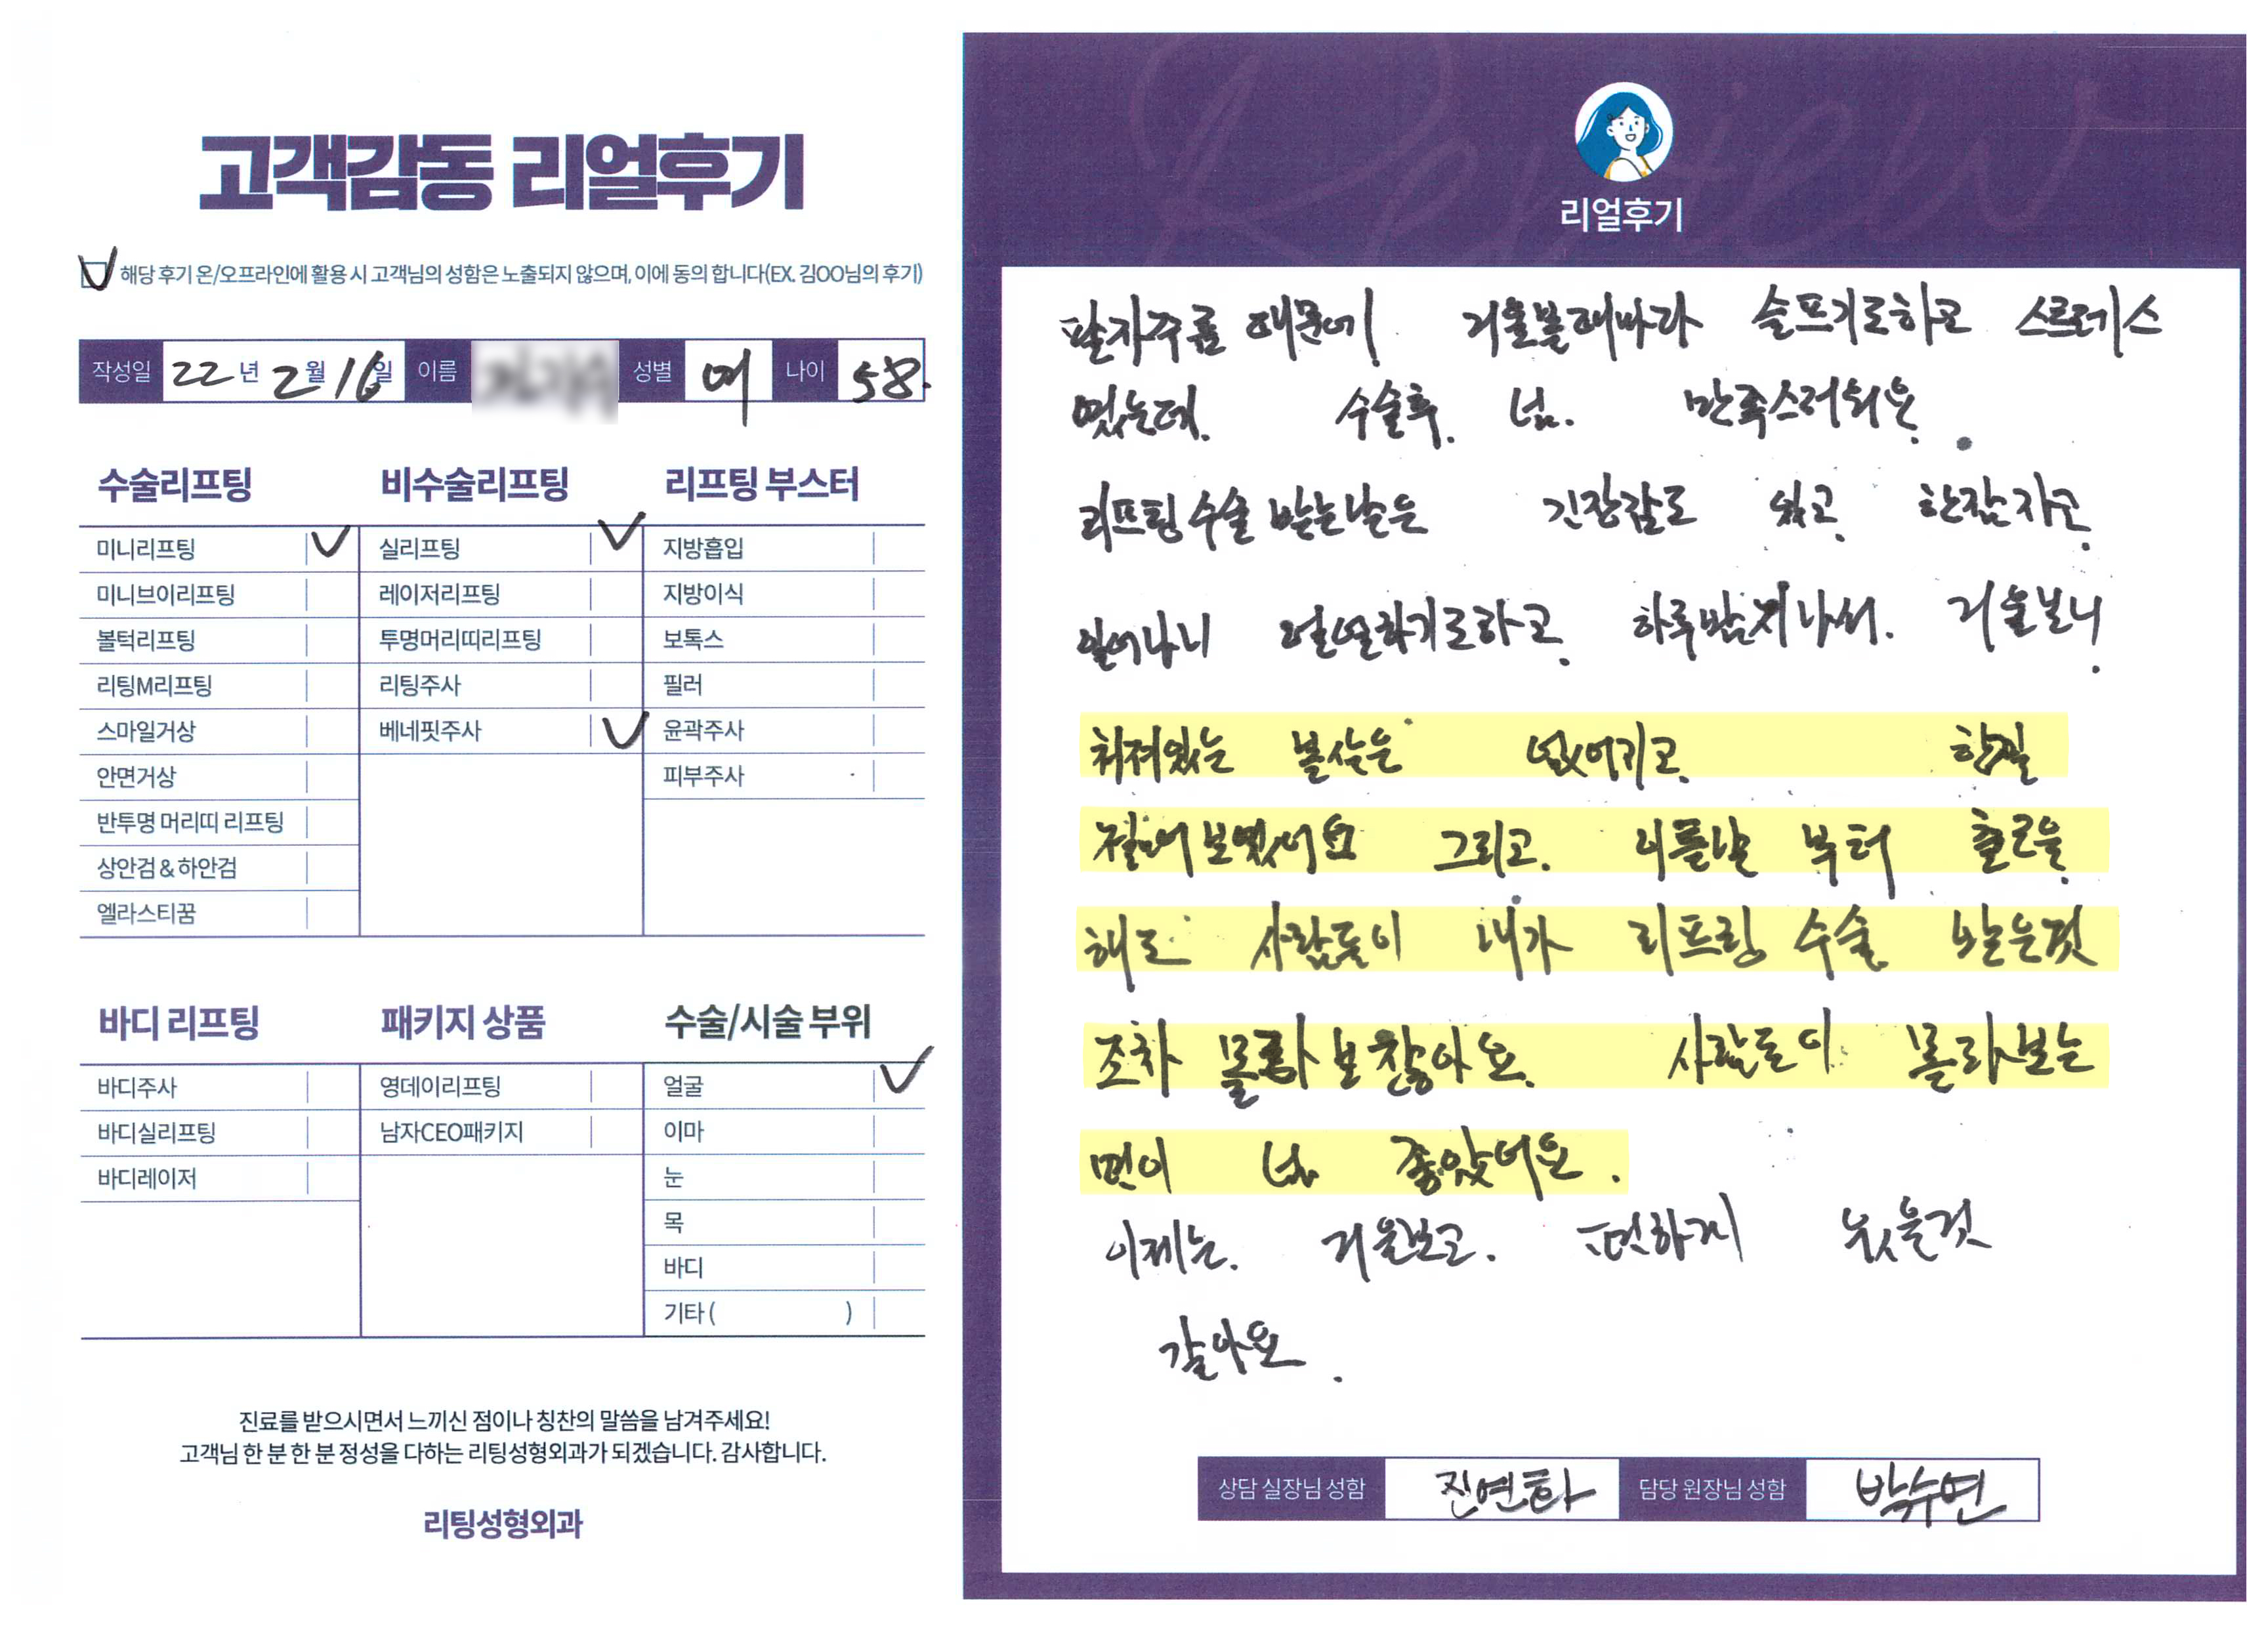 고객감동 리얼후기
해당 후기 온/오프라인에 활용 시 고객님의 성함은 노출되지 않으며, 이에 동의 합니다(EX. 김OO님의 후기)
작성일 22년 2월 16일 이름 성별 여 나이 58.
수술리프팅
미니리프팅
미니브이리프팅
볼턱리프팅
리팅M리프팅
스마일거상
안면거상
반투명 머리띠 리프팅
상안검 & 하안검
엘라스티꿈
비수술리프팅
실리프팅
레이저리프팅
투명머리띠리프팅
리팅주사
베네핏주사
리프팅 부스터
지방흡입
지방이식
보톡스
필러
윤곽주사
피부주사
바디 리프팅
바디주사
바디실리프팅
바디레이저
패키지 상품
영데이리프팅
남자CEO패키지
수술/시술 부위
얼굴
이마
눈
목
바디
기타 ( )
진료를 받으시면서 느끼신 점이나 칭찬의 말씀을 남겨주세요!
고객님 한 분 한 분 정성을 다하는 리팅성형외과가 되겠습니다. 감사합니다.
리팅성형외과
Review
리얼후기
팔자주름 때문에 거울볼때마다 슬프기도하고 스트레스
였는데. 수술후. 넘. 만족스러워요.
리프팅 수술 받는날은 긴장감도 있고. 한잠 자고.
일어나니 얼얼하기도하고. 하루밤 지나서. 거울보니.
처져있는 볼살은 없어지고. 한결
젊어 보였어요 그리고. 이틀날 부터 출근을.
해도 사람들이 내가 리프팅 수술 받은것
조차 몰라 보잖아요. 사람들이 몰라보는
면이 넘 좋았어요.
이제는. 거울보고. 편하게 웃을것
같아요.
상담 실장님 성함 진연화 담당 원장님 성함 박수연